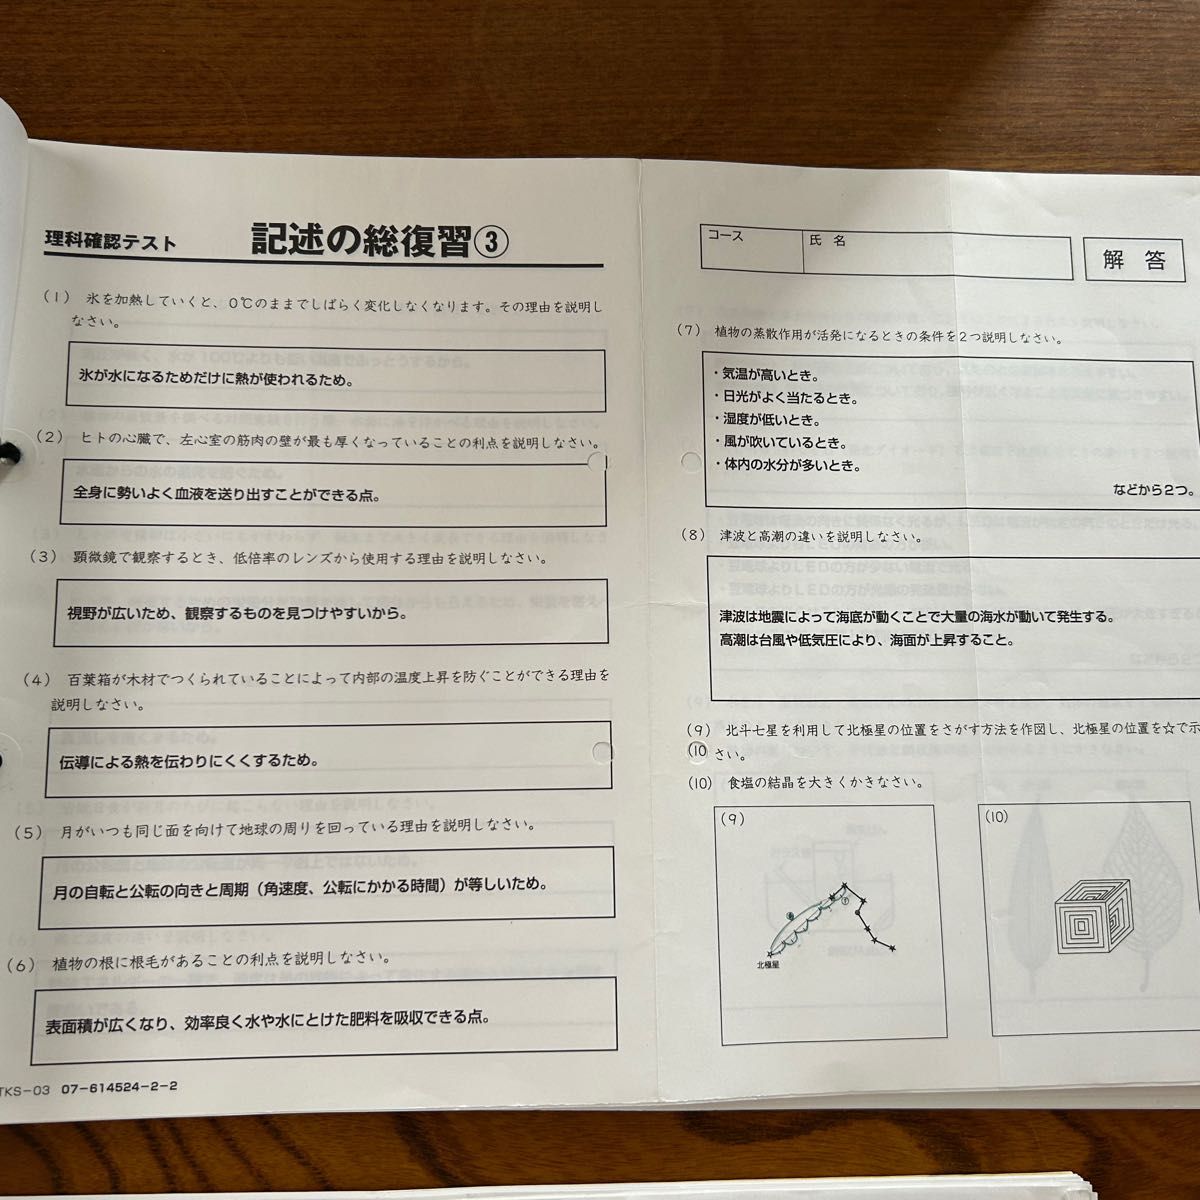 理科確認テスト 記述の総復習③
(1) 氷を加熱していくと、0℃のままでしばらく変化しなくなります。その理由を説明し
なさい。
氷が水になるためだけに熱が使われるため。
(2) ヒトの心臓で、左心室の筋肉の壁が最も厚くなっていることの利点を説明しなさい。
全身に勢いよく血液を送り出すことができる点。
(3) 顕微鏡で観察するとき、低倍率のレンズから使用する理由を説明しなさい。
視野が広いため、観察するものを見つけやすいから。
(4) 百葉箱が木材でつくられていることによって内部の温度上昇を防ぐことができる理由を
説明しなさい。
伝導による熱を伝わりにくくするため。
(5) 月がいつも同じ面を向けて地球の周りを回っている理由を説明しなさい。
月の自転と公転の向きと周期(角速度、公転にかかる時間)が等しいため。
(6) 植物の根に根毛があることの利点を説明しなさい。
表面積が広くなり、効率良く水や水にとけた肥料を吸収できる点。
TKS-03 07-614524-2-2
コース 氏名 解答
(7) 植物の蒸散作用が活発になるときの条件を2つ説明しなさい。
・気温が高いとき。
・日光がよく当たるとき。
・湿度が低いとき。
・風が吹いているとき。
・体内の水分が多いとき。
などから2つ。
(8) 津波と高潮の違いを説明しなさい。
津波は地震によって海底が動くことで大量の海水が動いて発生する。
高潮は台風や低気圧により、海面が上昇すること。
(9) 北斗七星を利用して北極星の位置をさがす方法を作図し、北極星の位置を☆で示
さい。
(10) 食塩の結晶を大きくかきなさい。
(9)
北極星
(10)